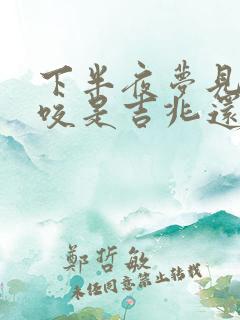 下半夜夢見
咬是吉兆還
鄭哲敏
未经同意禁止转载